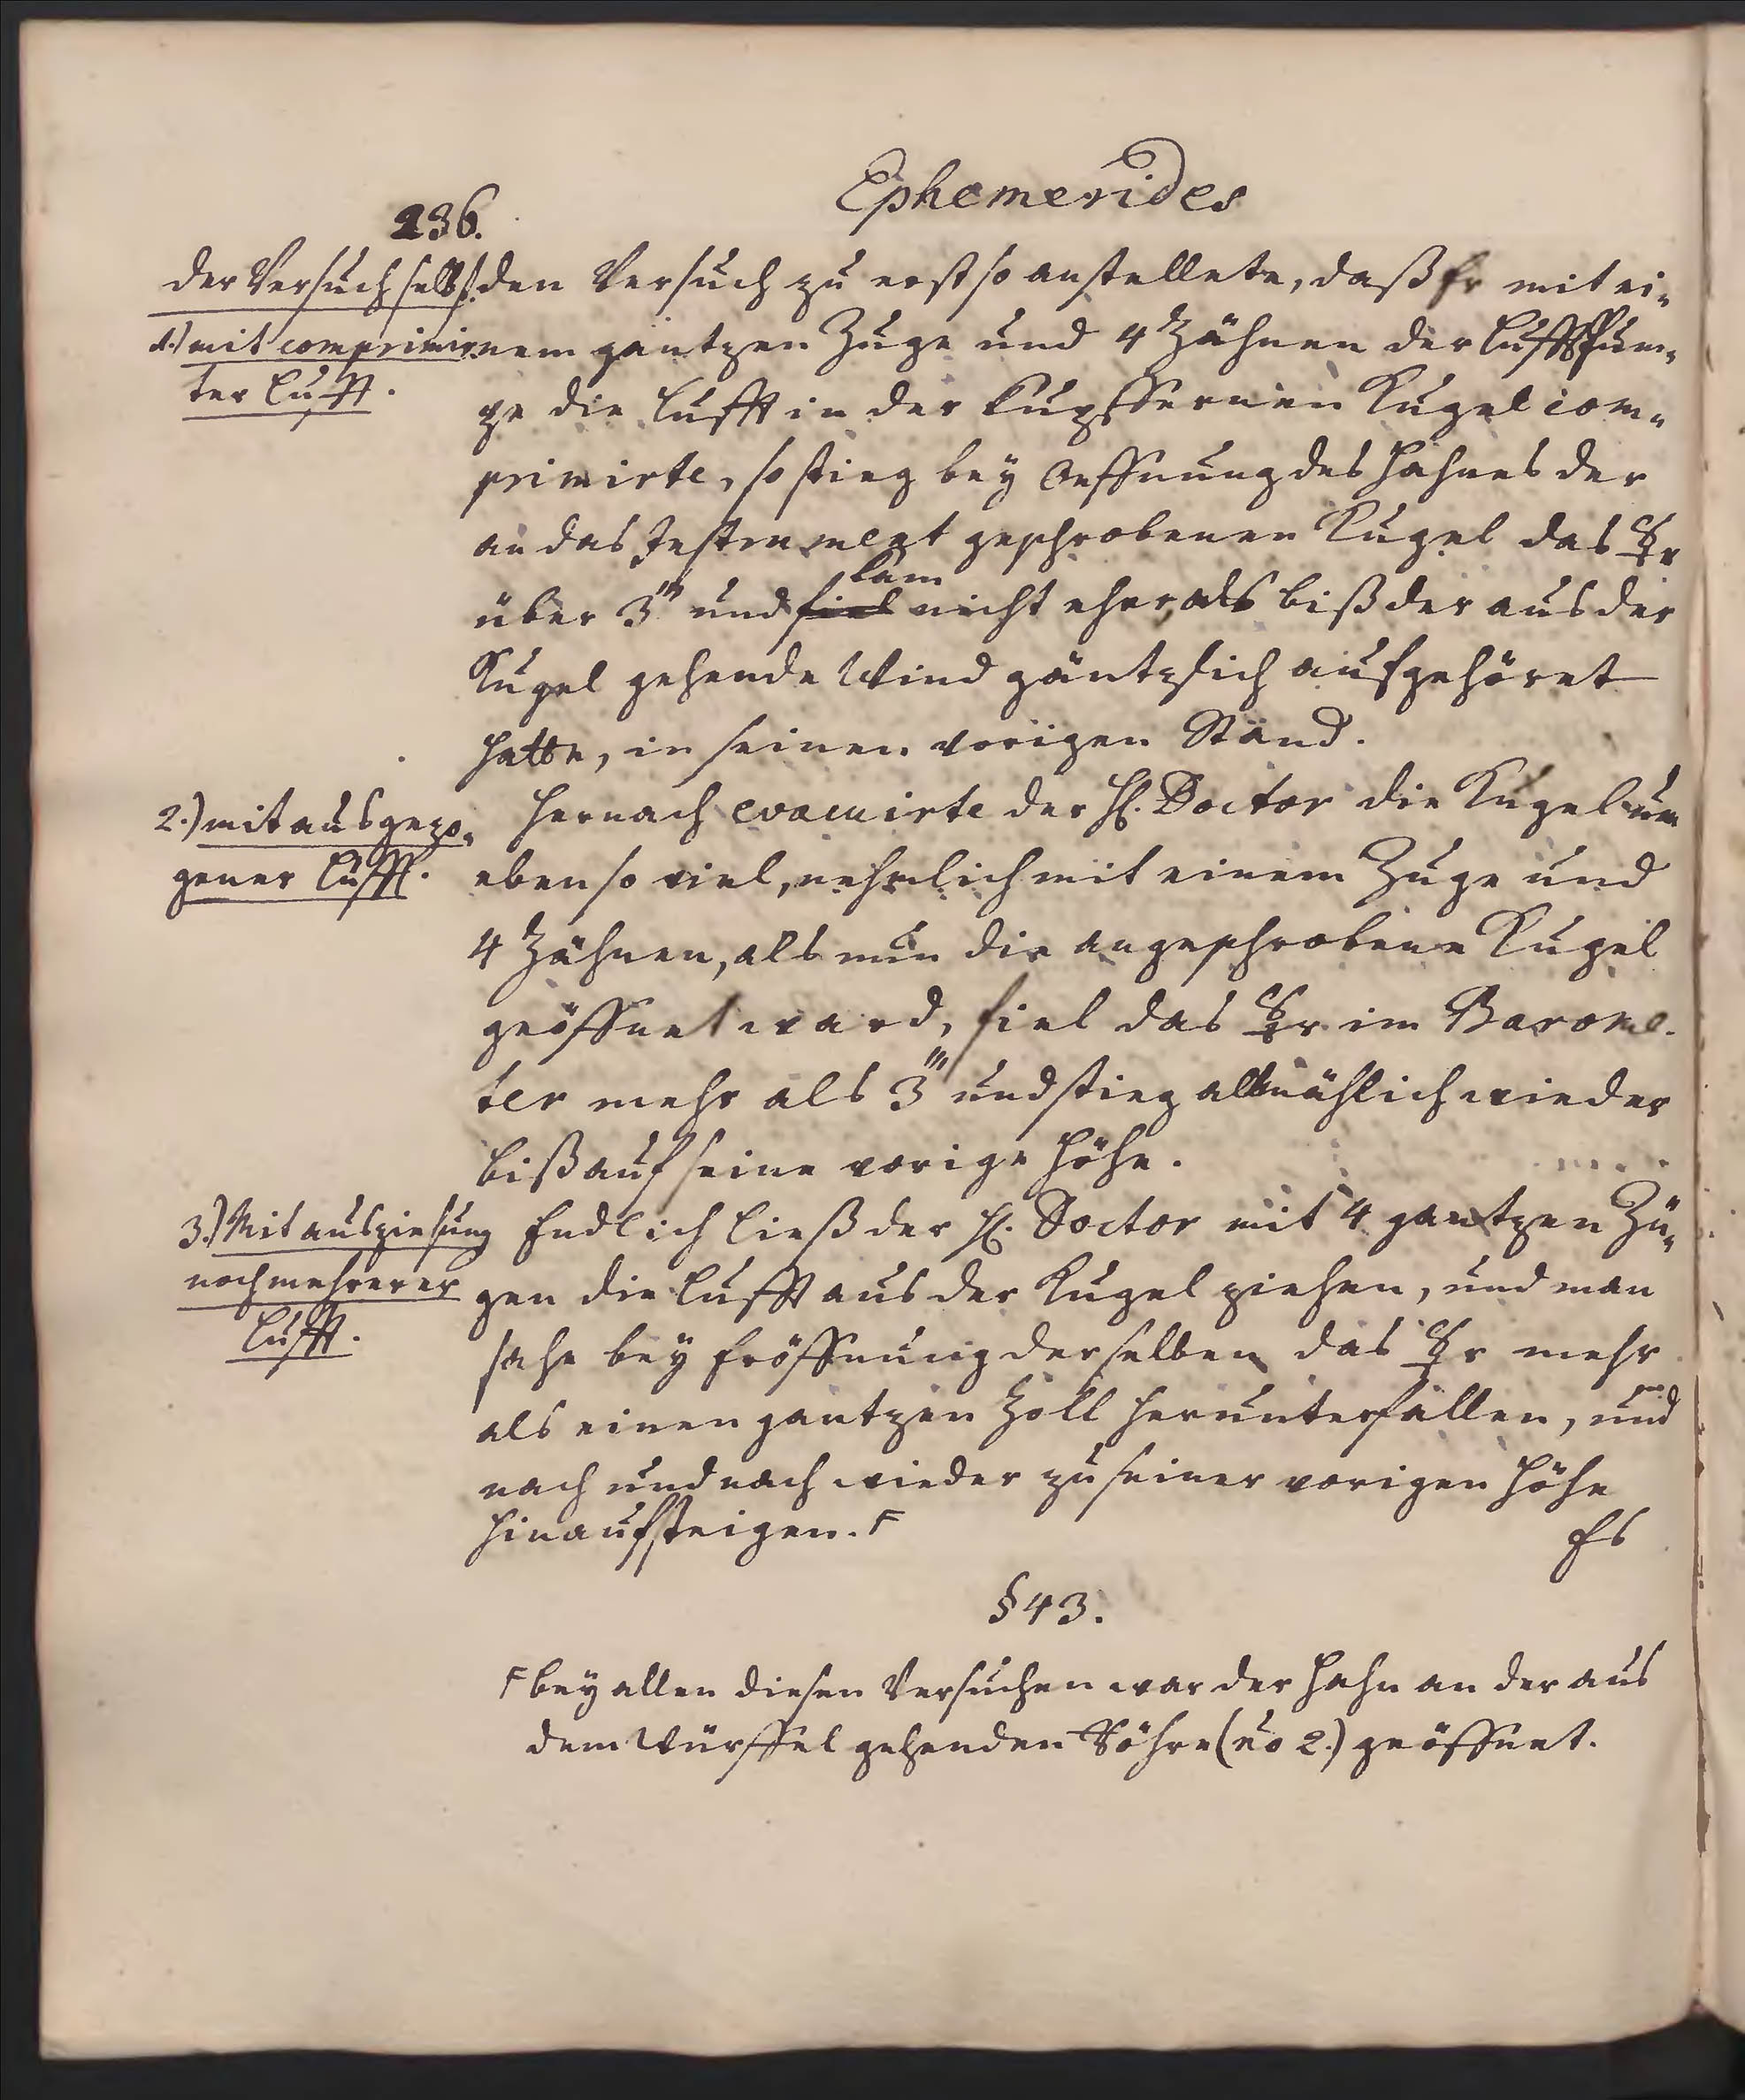 Ephemerides
236.
der Versuch selbst.
1.) mit comprimir-
ter Lufft.
den Versuch zu erst so anstellete, daß Er mit ei-
nem gantzen Zuge und 4 Zähnen der Lufftpum-
pe die Lufft in der kupffernen Kugel com-
primirte, so stieg bey Oeffnung des Hahnes der
an das Instrument geschrobenen Kugel das ☿r
über 3''' und fiel kam nicht eher, als biß der aus der
Kugel gehende Wind gäntzlich aufgehöret
hatte, in seinen vorigen Stand.
2.) mit ausgezo-
gener Lufft.
Hernach evacuirte der H. Doctor die Kugel um
eben so viel, nehmlich mit einem Zuge und
4 Zähnen, als nun die angeschrobene Kugel
geöffnet ward, fiel das ☿r im Barome-
ter mehr als 3''' und stieg allmählich wieder
biß auf seine vorige Höhe.
3.) Mit ausziehung
noch mehrerer
Lufft.
Endlich ließ der H. Doctor mit 4 gantzen Zü-
gen die Lufft aus der Kugel ziehen, und man
sahe bey Eröffnung derselben das ☿r mehr
als einen gantzen Zoll herunterfallen, und
nach und nach wieder zu seiner vorigen Höhe
hinaufsteigen. F
Es
§ 43.
F bey allen diesen Versuchen war der Hahn an der aus
dem Würffel gehenden Röhre (no 2.) geöffnet.